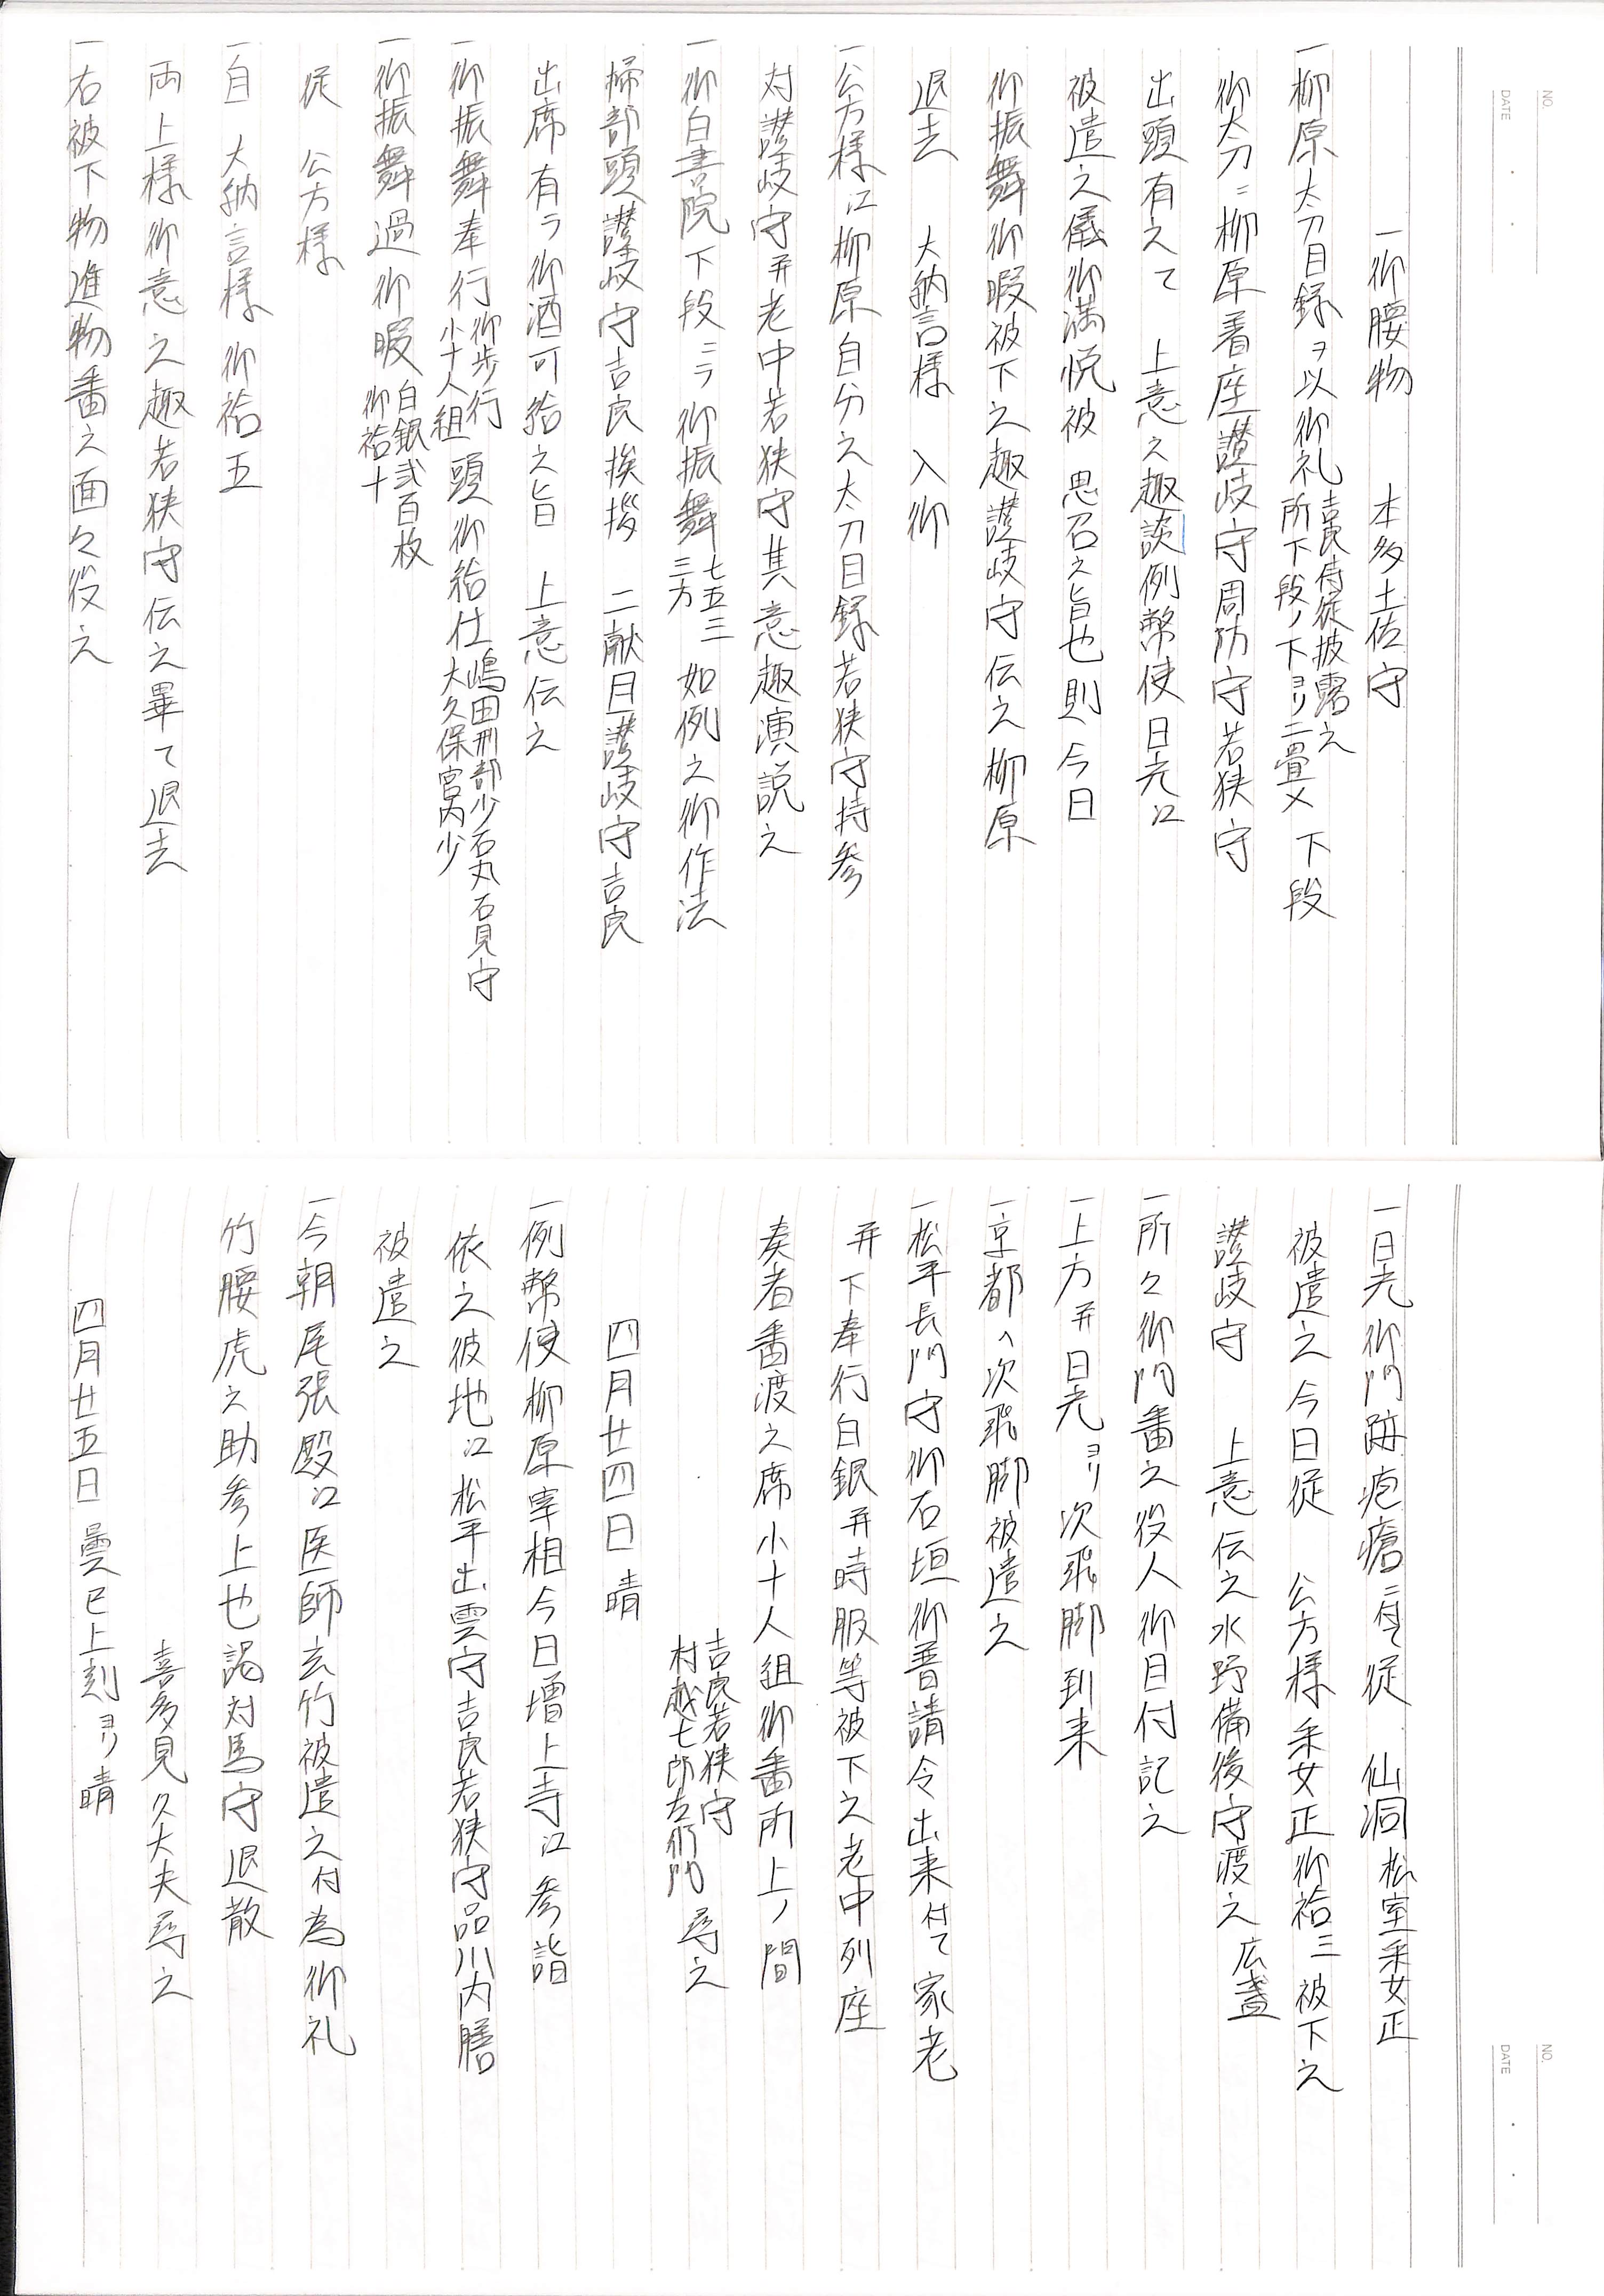 NO.
DATE
一御腰物　本多土佐守
一柳原太刀目録ヲ以御礼 吉良侍従披露之 所下段ノ下ヨリ二畳メ 下段
御太刀ニ柳原着座讃岐守周防守若狭守
出頭有之て　上意之趣談例幣使日光江
被遣之儀御満悦被　思召之旨也則今日
御振舞御暇被下之趣讃岐守伝之柳原
退去　大納言様　入御
一公方様江柳原自分之太刀目録若狭守持参
対讃岐守并老中若狭守其意趣演説之
一御白書院下段ニテ御振舞 七五三 三方 如例之御作法
掃部頭讃岐守吉良挨拶　二献目讃岐守吉良
出席有テ御酒可給之旨　上意伝之
一御振舞奉行 御歩行 小十人組 頭御給仕 嶋田刑部少石丸石見守 大久保宮内少
一御振舞過御暇 白銀弐百枚 御袷十
従　公方様
一自　大納言様御袷五
両上様御意之趣若狭守伝之畢て退去
一右被下物進物番之面々役之
NO.
DATE
一日光御門跡疱瘡ニ付て従　仙洞松室采女正
被遣之今日従　公方様采女正御袷三被下之
讃岐守　上意伝之水野備後守渡之 広蓋
一所々御門番之役人御目付記之
一上方并日光ヨリ次飛脚到来
一京都へ次飛脚被遣之
一松平長門守御石垣御普請令出来付て家老
并下奉行白銀并時服等被下之老中列座
奏者番渡之席小十人組御番所上ノ間
吉良若狭守 村越七郎左衛門 尋之
四月廿四日　晴
一例幣使柳原宰相今日増上寺江参詣
依之彼地江松平出雲守吉良若狭守品川内膳
被遣之
一今朝尾張殿江医師玄竹被遣之付為御礼
竹腰虎之助参上也謁対馬守退散
喜多見久大夫尋之
四月廿五日　曇巳上刻ヨリ晴